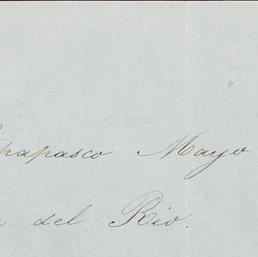 papasco Mayo
del Rio.